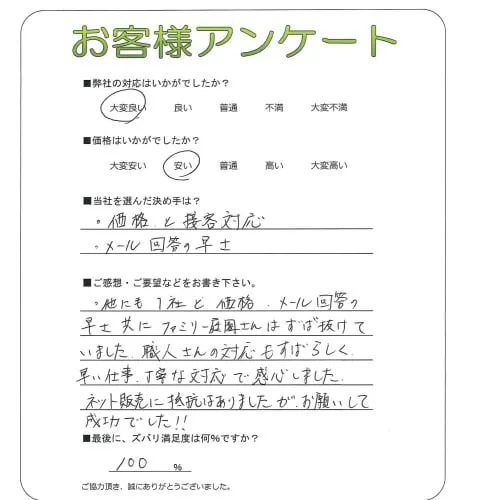 お客様アンケート
■弊社の対応はいかがでしたか?
大変良い 良い 普通 不満 大変不満
■価格はいかがでしたか?
大変安い 安い 普通 高い 大変高い
■当社を選んだ決め手は?
・価格と接客対応
・メール回答の早士
■ご感想・ご要望などをお書き下さい。
・他にも1社と価格、メール回答の
早士共にファミリー庭園さんはずば抜けて
いました。職人さんの対応もすばらしく、
早い仕事、丁寧な対応で感心しました。
ネット販売に抵抗はありましたが、お願いして
成功でした!!
■最後に、ズバリ満足度は何%ですか?
100 %
ご協力頂き、誠にありがとうございました。